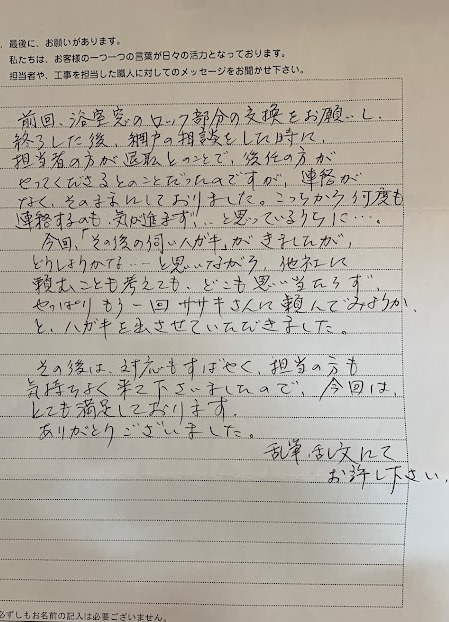 、最後に、お願いがあります。
私たちは、お客様の一つ一つの言葉が日々の活力となっております。
担当者や、工事を担当した職人に対してのメッセージをお聞かせ下さい。
前回、浴室窓のロック部分の交換をお願いし、
終了した後、網戸の相談をした時に、
担当者の方が退職とのことで、後任の方が
やってくださるとのことだったのですが、連絡が
なく、そのままにしておりました。こっちから何度も
連絡するのも、気が進まず…と思っているうちに…。
今回、「その後の伺いハガキ」がきましたが、
どうしようかな…と思いながら、他社に
頼むことも考えても、どこも思い当たらず、
やっぱりもう一回ササキさんに頼んでみようか、
と、ハガキを出させていただきました。
その後は、対応もすばやく、担当の方も
気持ちよく来て下さいましたので、今回は、
とても満足しております。
ありがとうございました。
乱筆乱文にて
お許し下さい。
必ずしもお名前の記入は必要ございません。